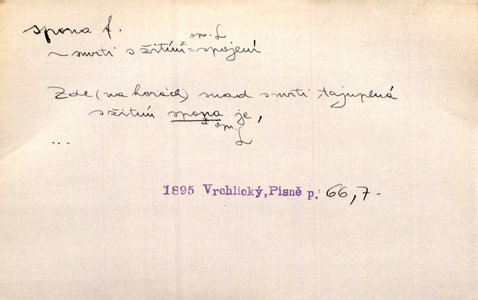 spona f.
~ smrti s žitím = spojení
Zde (na horách) snad smrti tajuplná
s žitím spona je,
...
1895 Vrchlický, Písně p. 66,7.